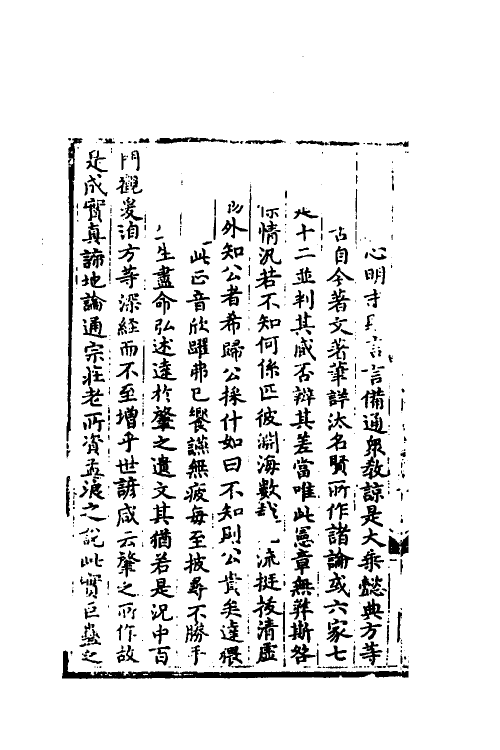 心明才言言備通衆教諒是大乘懿典方等
古自今著文著筆詳汰名賢所作諸論或六家七
十二並判其咸否辨其差當唯此憲章無弊斯咎
情況若不知何係匹彼淵海數越流挺拔清虛
外知公者希歸公採什如曰不知則公貴矣達猥
此正音欣躍弗已饗讌無疲每至披尋不勝手
生盡命弘述達於肇之遺文其猶若是況中百
門觀爰洎方等深經而不至增乎世諺咸云肇之所作故
是成實真諦地論通宗莊老所資孟浪之說此實巨蠱之